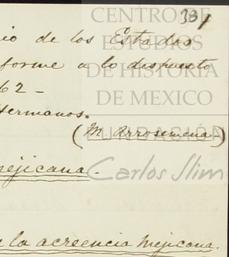 CENTRO DE
ESTUDIOS
DE HISTORIA
DE MEXICO
FUNDACIÓN
Carlos Slim
331
io de los Estados
forme a lo dispuesto
62 -
Hermanos.
(M. Arrosemena)
ejicana.
a la acreencia Mejicana.